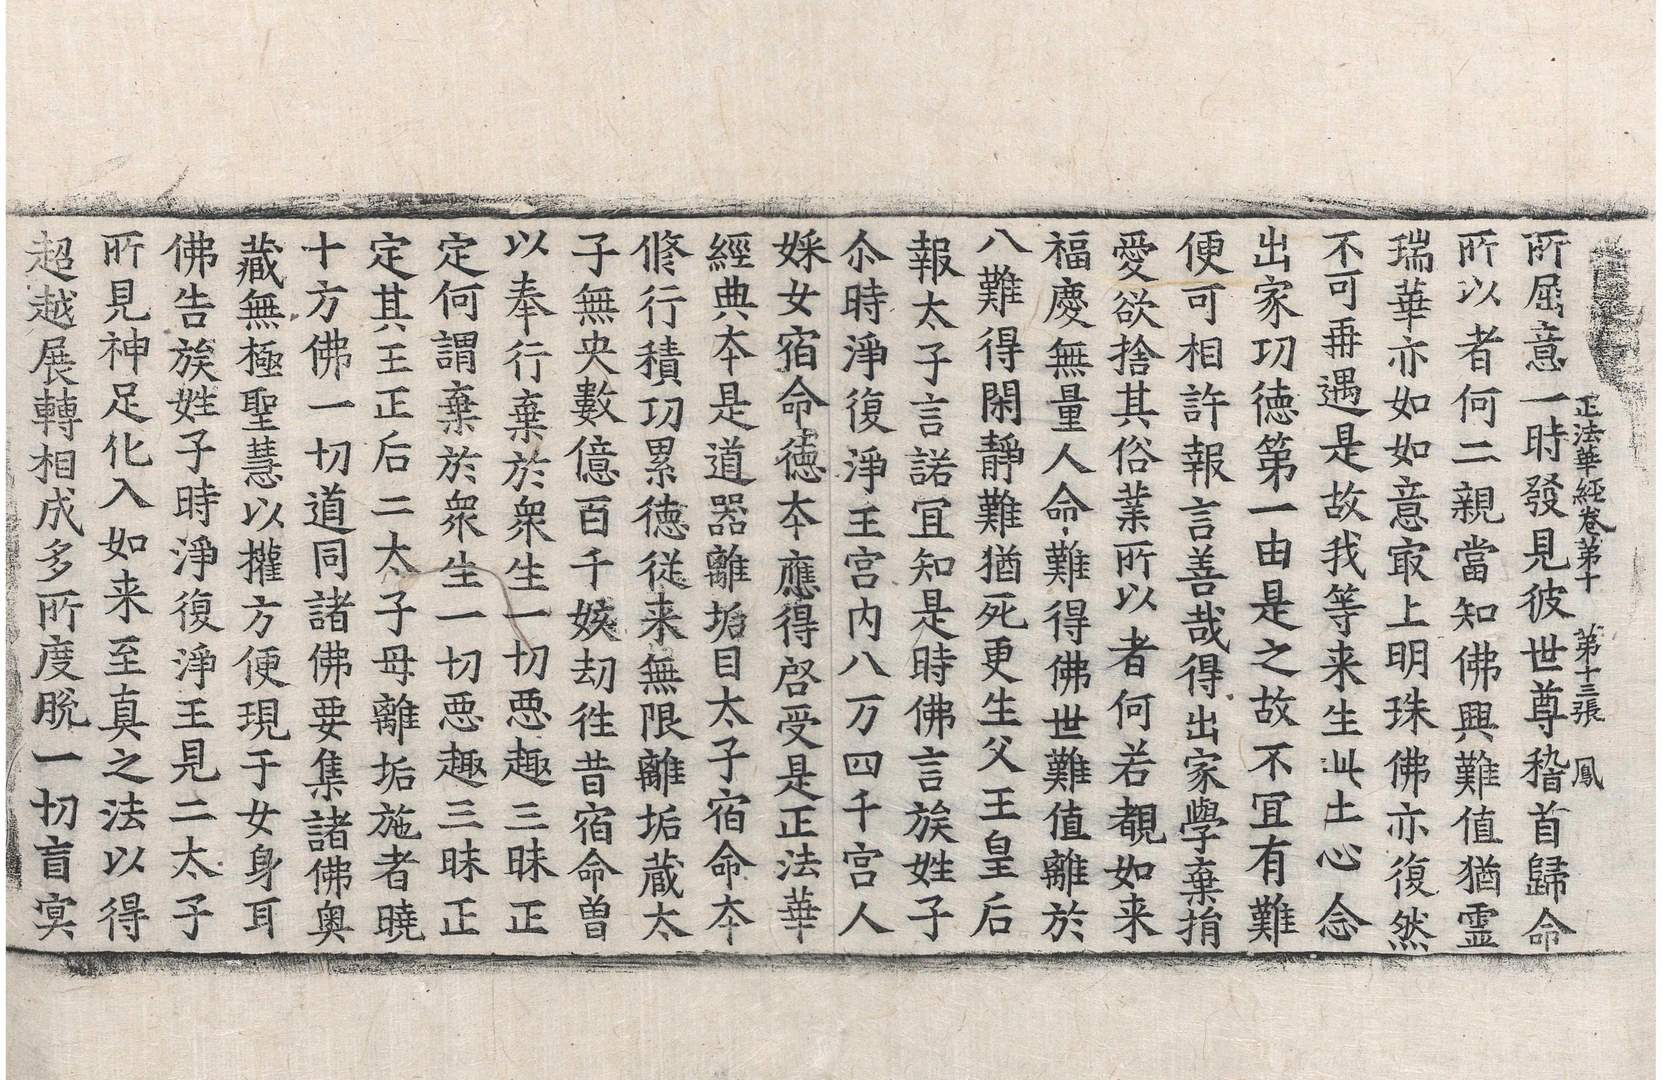 正法華經卷第十 第十三張 鳳
所屈意一時發見彼世尊稽首歸命
所以者何二親當知佛興難值猶霊
瑞華亦如如意㝡上明珠佛亦復然
不可再遇是故我等来生此土心念
出家功德第一由是之故不冝有難
便可相許報言善哉得出家學棄捐
愛欲捨其俗業所以者何若覩如来
福慶無量人命難得佛世難值離於
八難得閑靜難猶死更生父王皇后
報太子言諾冝知是時佛言族姓子
尒時淨復淨王宮内八万四千宮人
婇女宿命德本應得啓受是正法華
經典本是道器離垢目太子宿命本
修行積功累德従来無限離垢藏太
子無央數億百千姟劫徃昔宿命曽
以奉行棄於衆生一切悪趣三昧正
定何謂棄於衆生一切悪趣三昧正
定其王正后二太子母離垢施者曉
十方佛一切道同諸佛要集諸佛奥
藏無極聖慧以權方便現于女身耳
佛告族姓子時淨復淨王見二太子
所見神足化入如来至真之法以得
超越展轉相成多所度脫一切盲冥